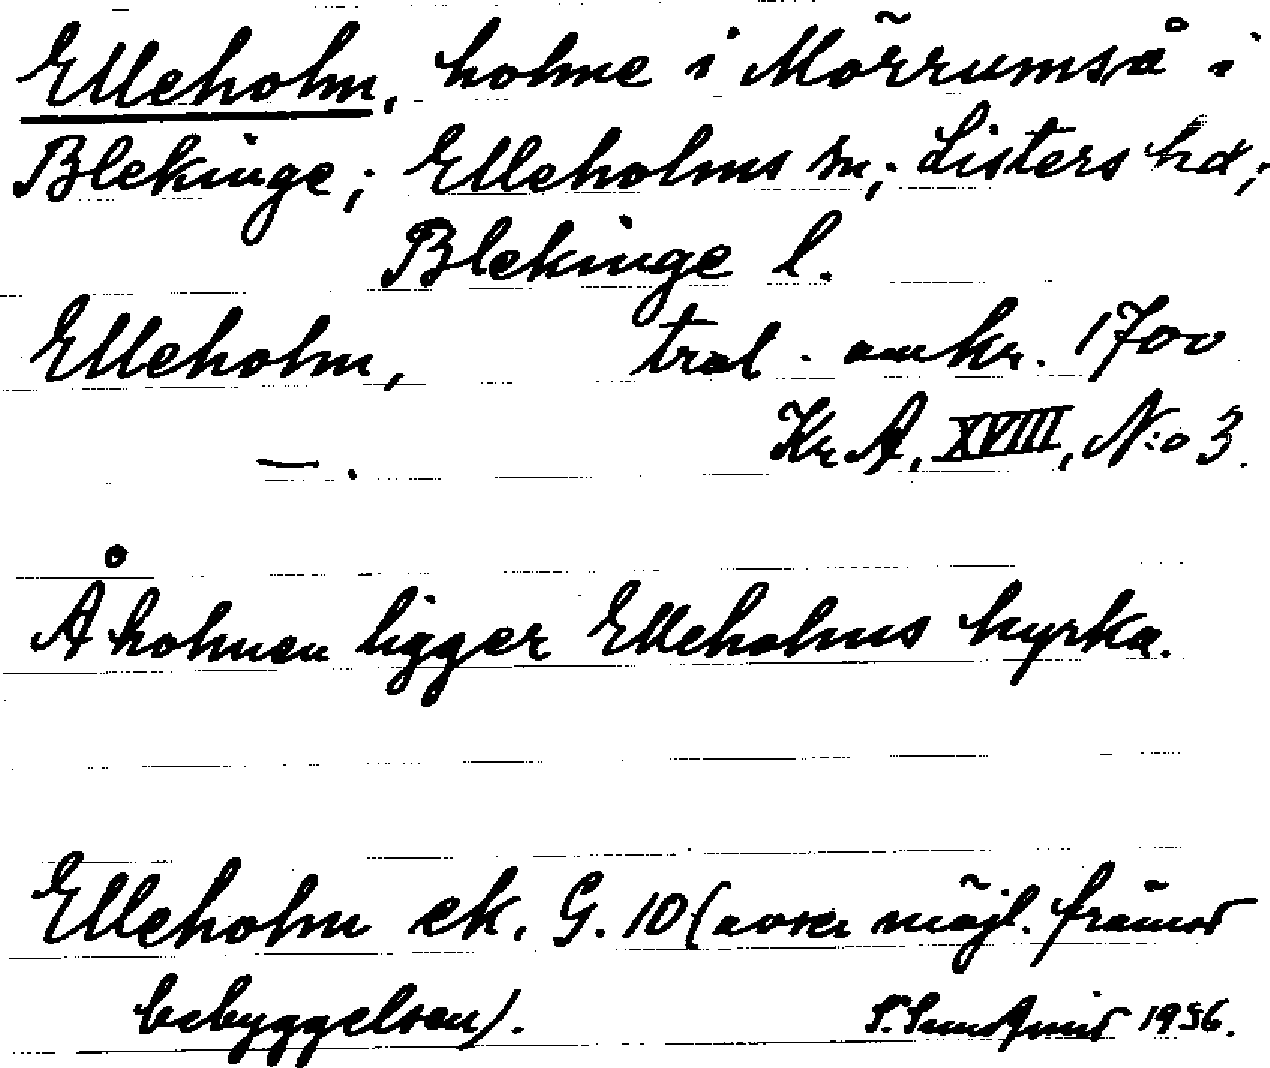 Elleholm, holme i Mörrumså i
Blekinge; Elleholms sn; Listers hd;
Blekinge l.
Elleholm, tral. omkr. 1700
Kr.A. XVIII, N:o 3.
— .
Å holmen ligger Elleholms kyrka.
Elleholm ek. G. 10 (avser möjl. främst
bebyggelsen).
1956.